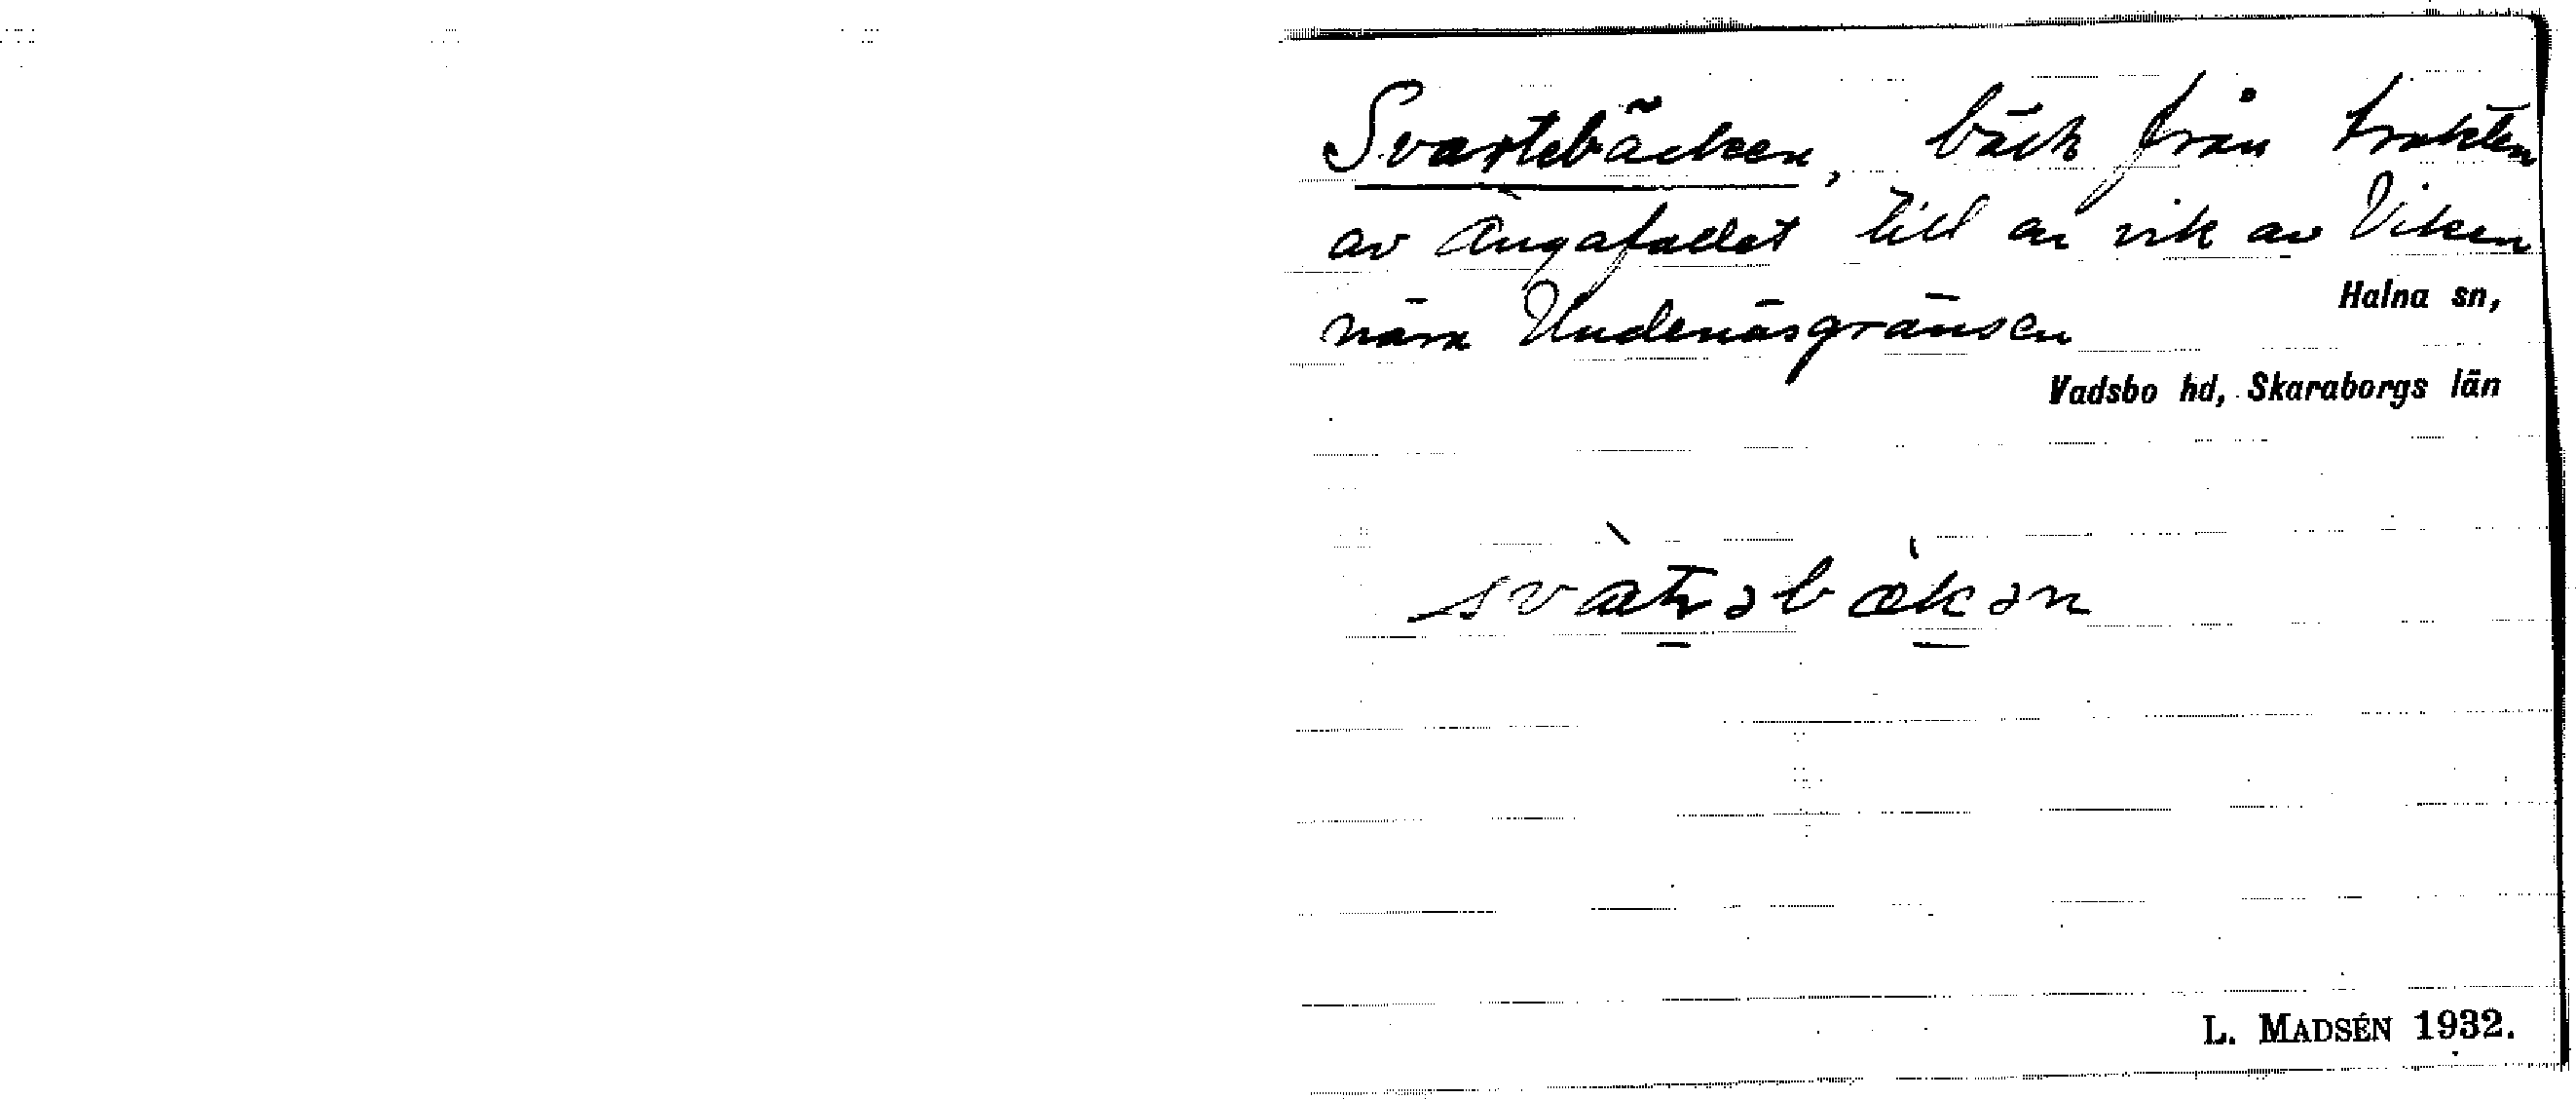 Svartebäcken, bäck från trakten
av Ängafallet till en vik av Viken
nära Undenäsgränsen
Halna sn,
Vadsbo hd, Skaraborgs län
L. MADSÉN 1932.